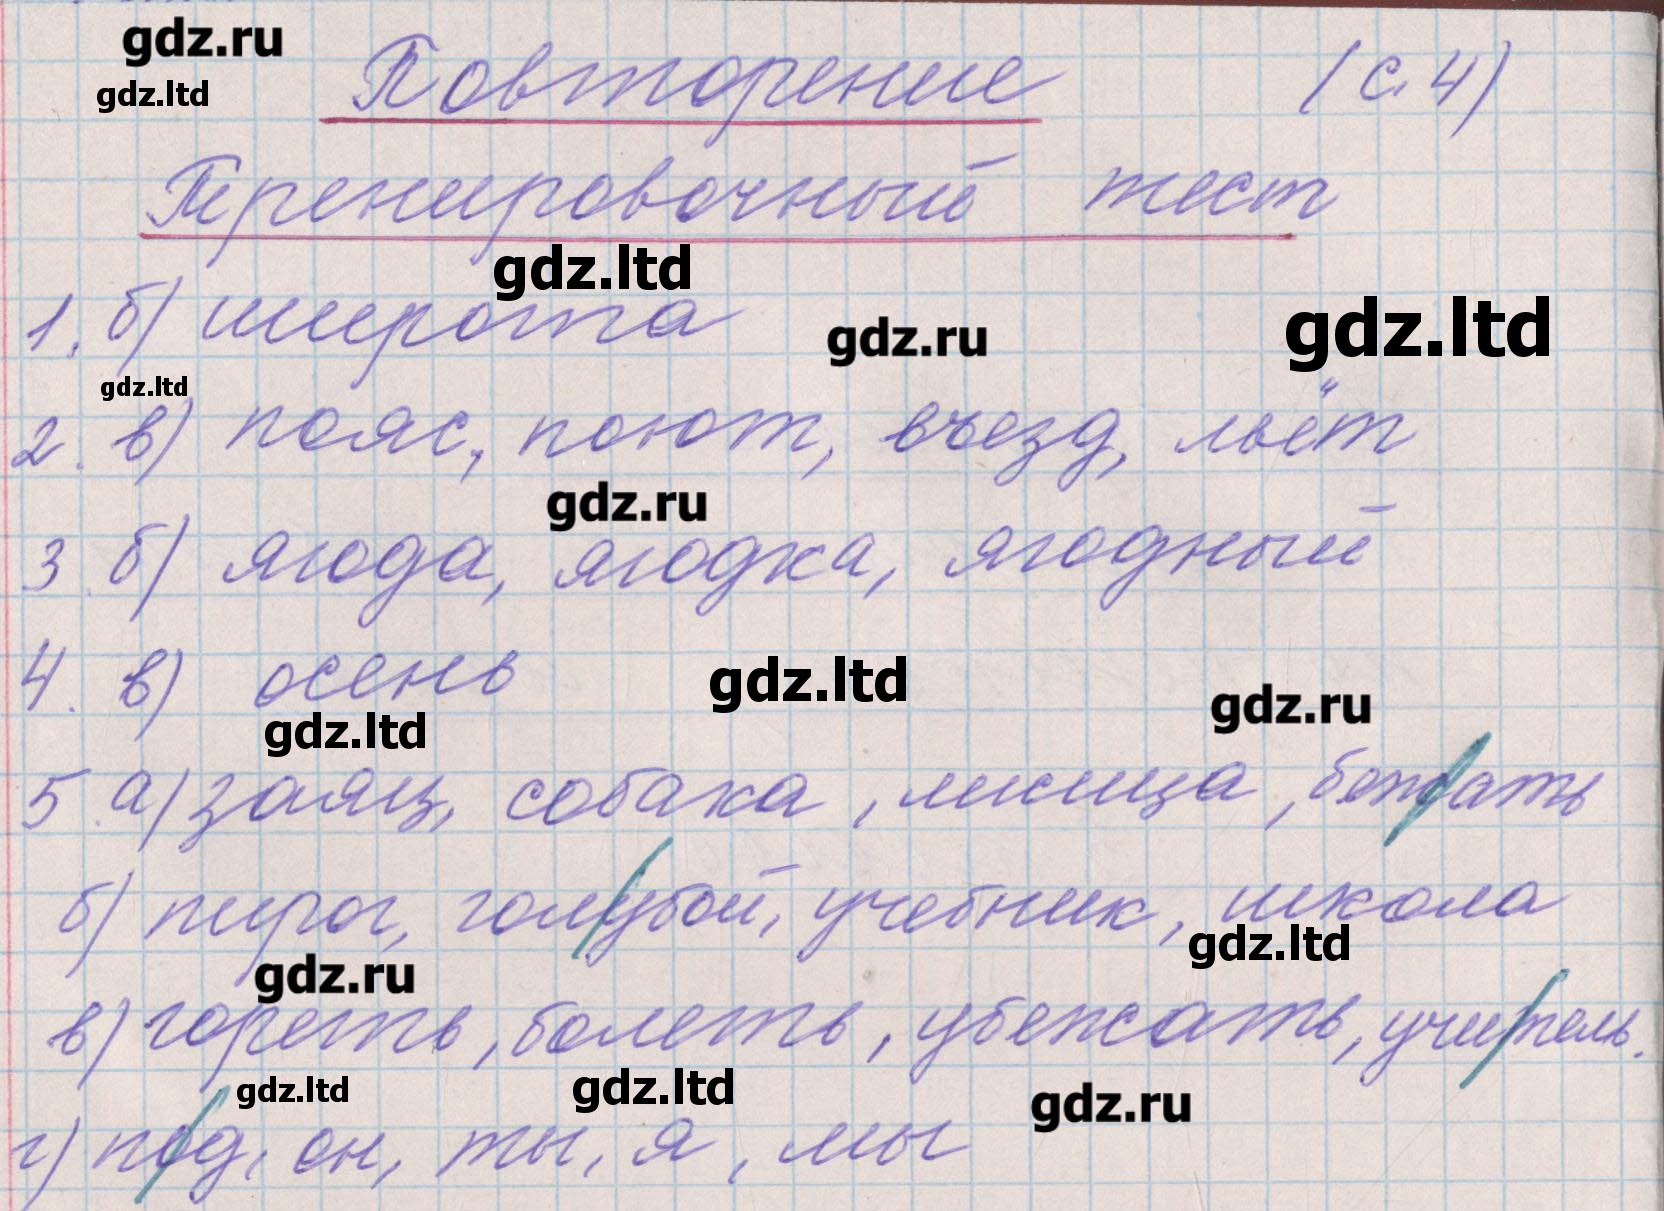 gdz.ru
gdz.ltd
Повторение (с. 4)
Тренировочный тест
gdz.ltd
1. б) широта
gdz.ru
gdz.ltd
gdz.ltd
2. в) пояс, поют, въезд, льёт
gdz.ru
3. б) ягода, ягодка, ягодный
4. в) осень
gdz.ltd
gdz.ru
gdz.ltd
5. а) заяц, собака, лисица, бежать
б) пирог, голубой, учебник, школа
gdz.ltd
gdz.ru
в) гореть, болеть, убежать, учитель.
gdz.ltd
gdz.ltd
gdz.ru
г) под, он, ты, я, мы